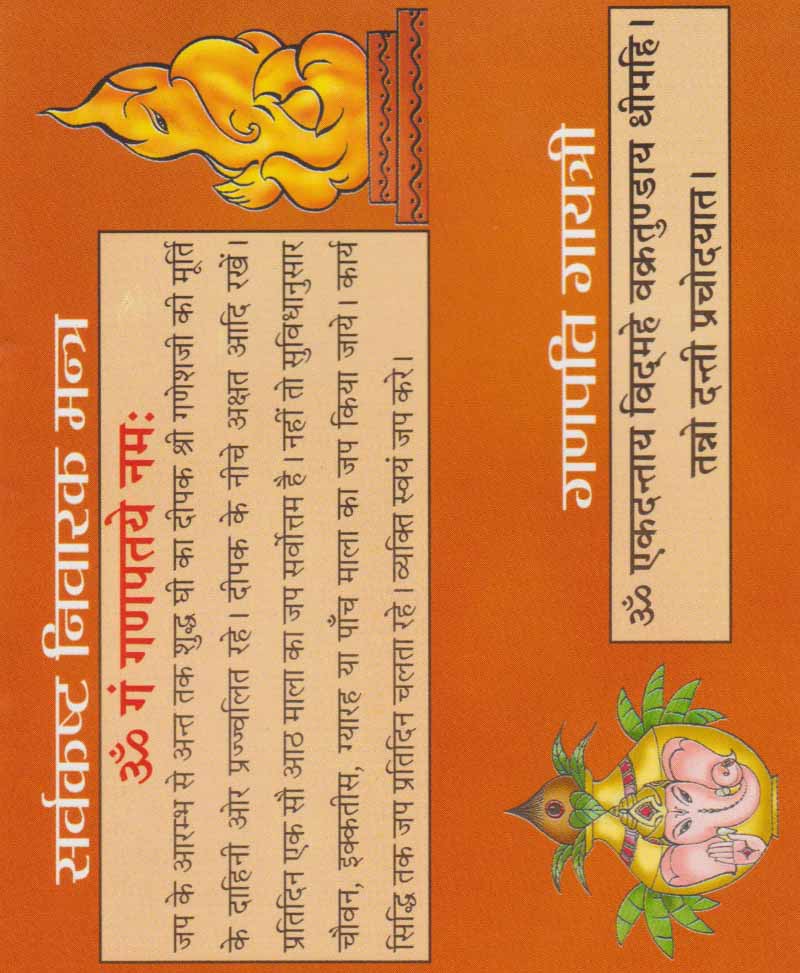 सर्वकष्ट निवारक मन्त्र
ॐ गं गणपतये नमः
जप के आरम्भ से अन्त तक शुद्ध घी का दीपक श्री गणेशजी की मूर्ति
के दाहिनी ओर प्रज्ज्वलित रहे। दीपक के नीचे अक्षत आदि रखें।
प्रतिदिन एक सौ आठ माला का जप सर्वोत्तम है। नहीं तो सुविधानुसार
चौवन, इक्कतीस, ग्यारह या पाँच माला का जप किया जाये। कार्य
सिद्धि तक जप प्रतिदिन चलता रहे। व्यक्ति स्वयं जप करे।
गणपति गायत्री
ॐ एकदन्ताय विद्महे वक्रतुण्डाय धीमहि।
तन्नो दन्ती प्रचोदयात।